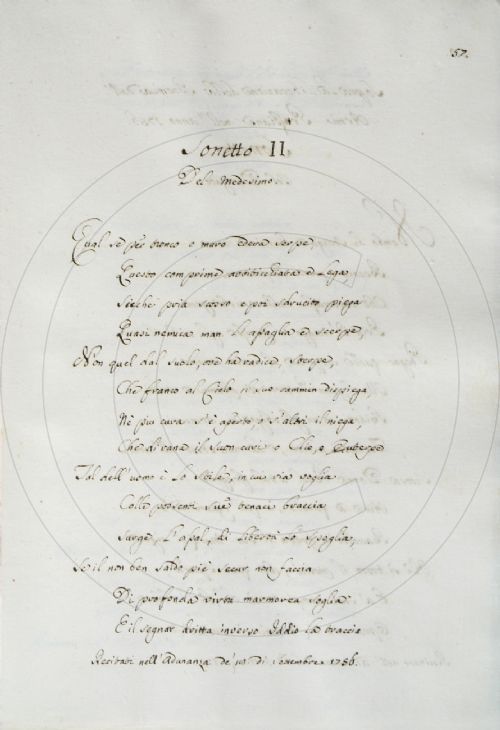 57.
Sonetto II
Del medesimo
Qual se per tronco o muro edera serpe
Questo comprime avviticchiata e lega,
Sicchè pria scosso e poi sdrucito piega
Quasi nemica man l'assaglia e sterpe,
Non quel dal suolo, ove ha radice, sterpe,
Che franco al Cielo il suo cammin dispiega,
Nè più cura s'è aperto o s'altri il niega,
Che di vane il suon curi o Clio, o Euterpe
Tal dell' uomo è lo Stile, in cui ria voglia
Colle possenti sue tenaci braccia
surge, di libertà lo spoglia,
Se il non ben saldo piè secur non faccia
Di profonda virtù marmorea soglia
E il segnar dritta inverso Iddio la traccia
Recitati nell' Adunanza de' di Settembre 1786.